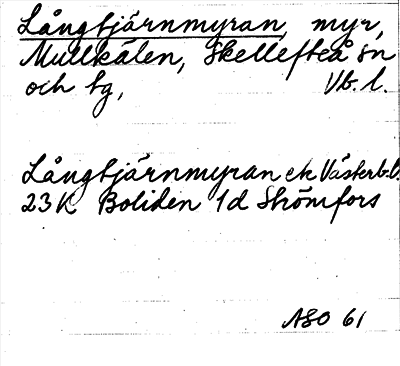 Långtjärnmyran, myr,
Mullkälen, Skellefteå sn
och tg, Vb. l.
Långtjärnmyran ek Västerb. l.
23K Boliden 1d Strömfors
ASO 61